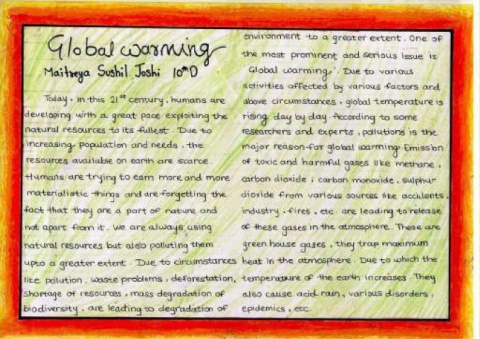 Global warming
Maitreya Sushil Joshi 10th D
Today, in this 21st century, humans are
developing with a great pace exploiting the
natural resources to its fullest. Due to
increasing population and needs, the
resources available on earth are scarce.
Humans are trying to earn more and more
materialistic things and are forgetting the
fact that they are a part of nature and
not apart from it. We are always using
natural resources but also polluting them
upto a greater extent. Due to circumstances
like pollution, waste problems, deforestation,
shortage of resources, mass degradation of
biodiversity, are leading to degradation of
environment to a greater extent. One of
the most prominent and serious issue is
'Global warming'. Due to various
activities affected by various factors and
above circumstances, global temperature is
rising day by day. According to some
researchers and experts, pollutions is the
major reason for global warming. Emission
of toxic and harmful gases like methane,
carbon dioxide, carbon monoxide, sulphur
dioxide from various sources like accidents,
industry, fires, etc. are leading to release
of these gases in the atmosphere. These are
green house gases, they trap maximum
heat in the atmosphere. Due to which the
temperature of the earth increases. They
also cause acid rain, various disorders,
epidemics, etc.